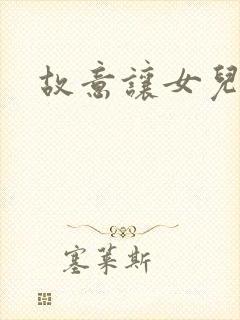 故意讓女兒
塞萊斯